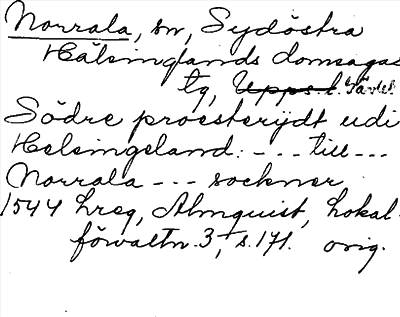 Norrala, sn, Sydöstra
Hälsinglands domsagas
tg, Upps. l. Gävleb.
Södre proesterijdt udi
Helsingeland: --- till ---
Norrala --- sockner
1544 hreg, Almquist, Lokal-
förvaltn. 3, s. 171. orig.